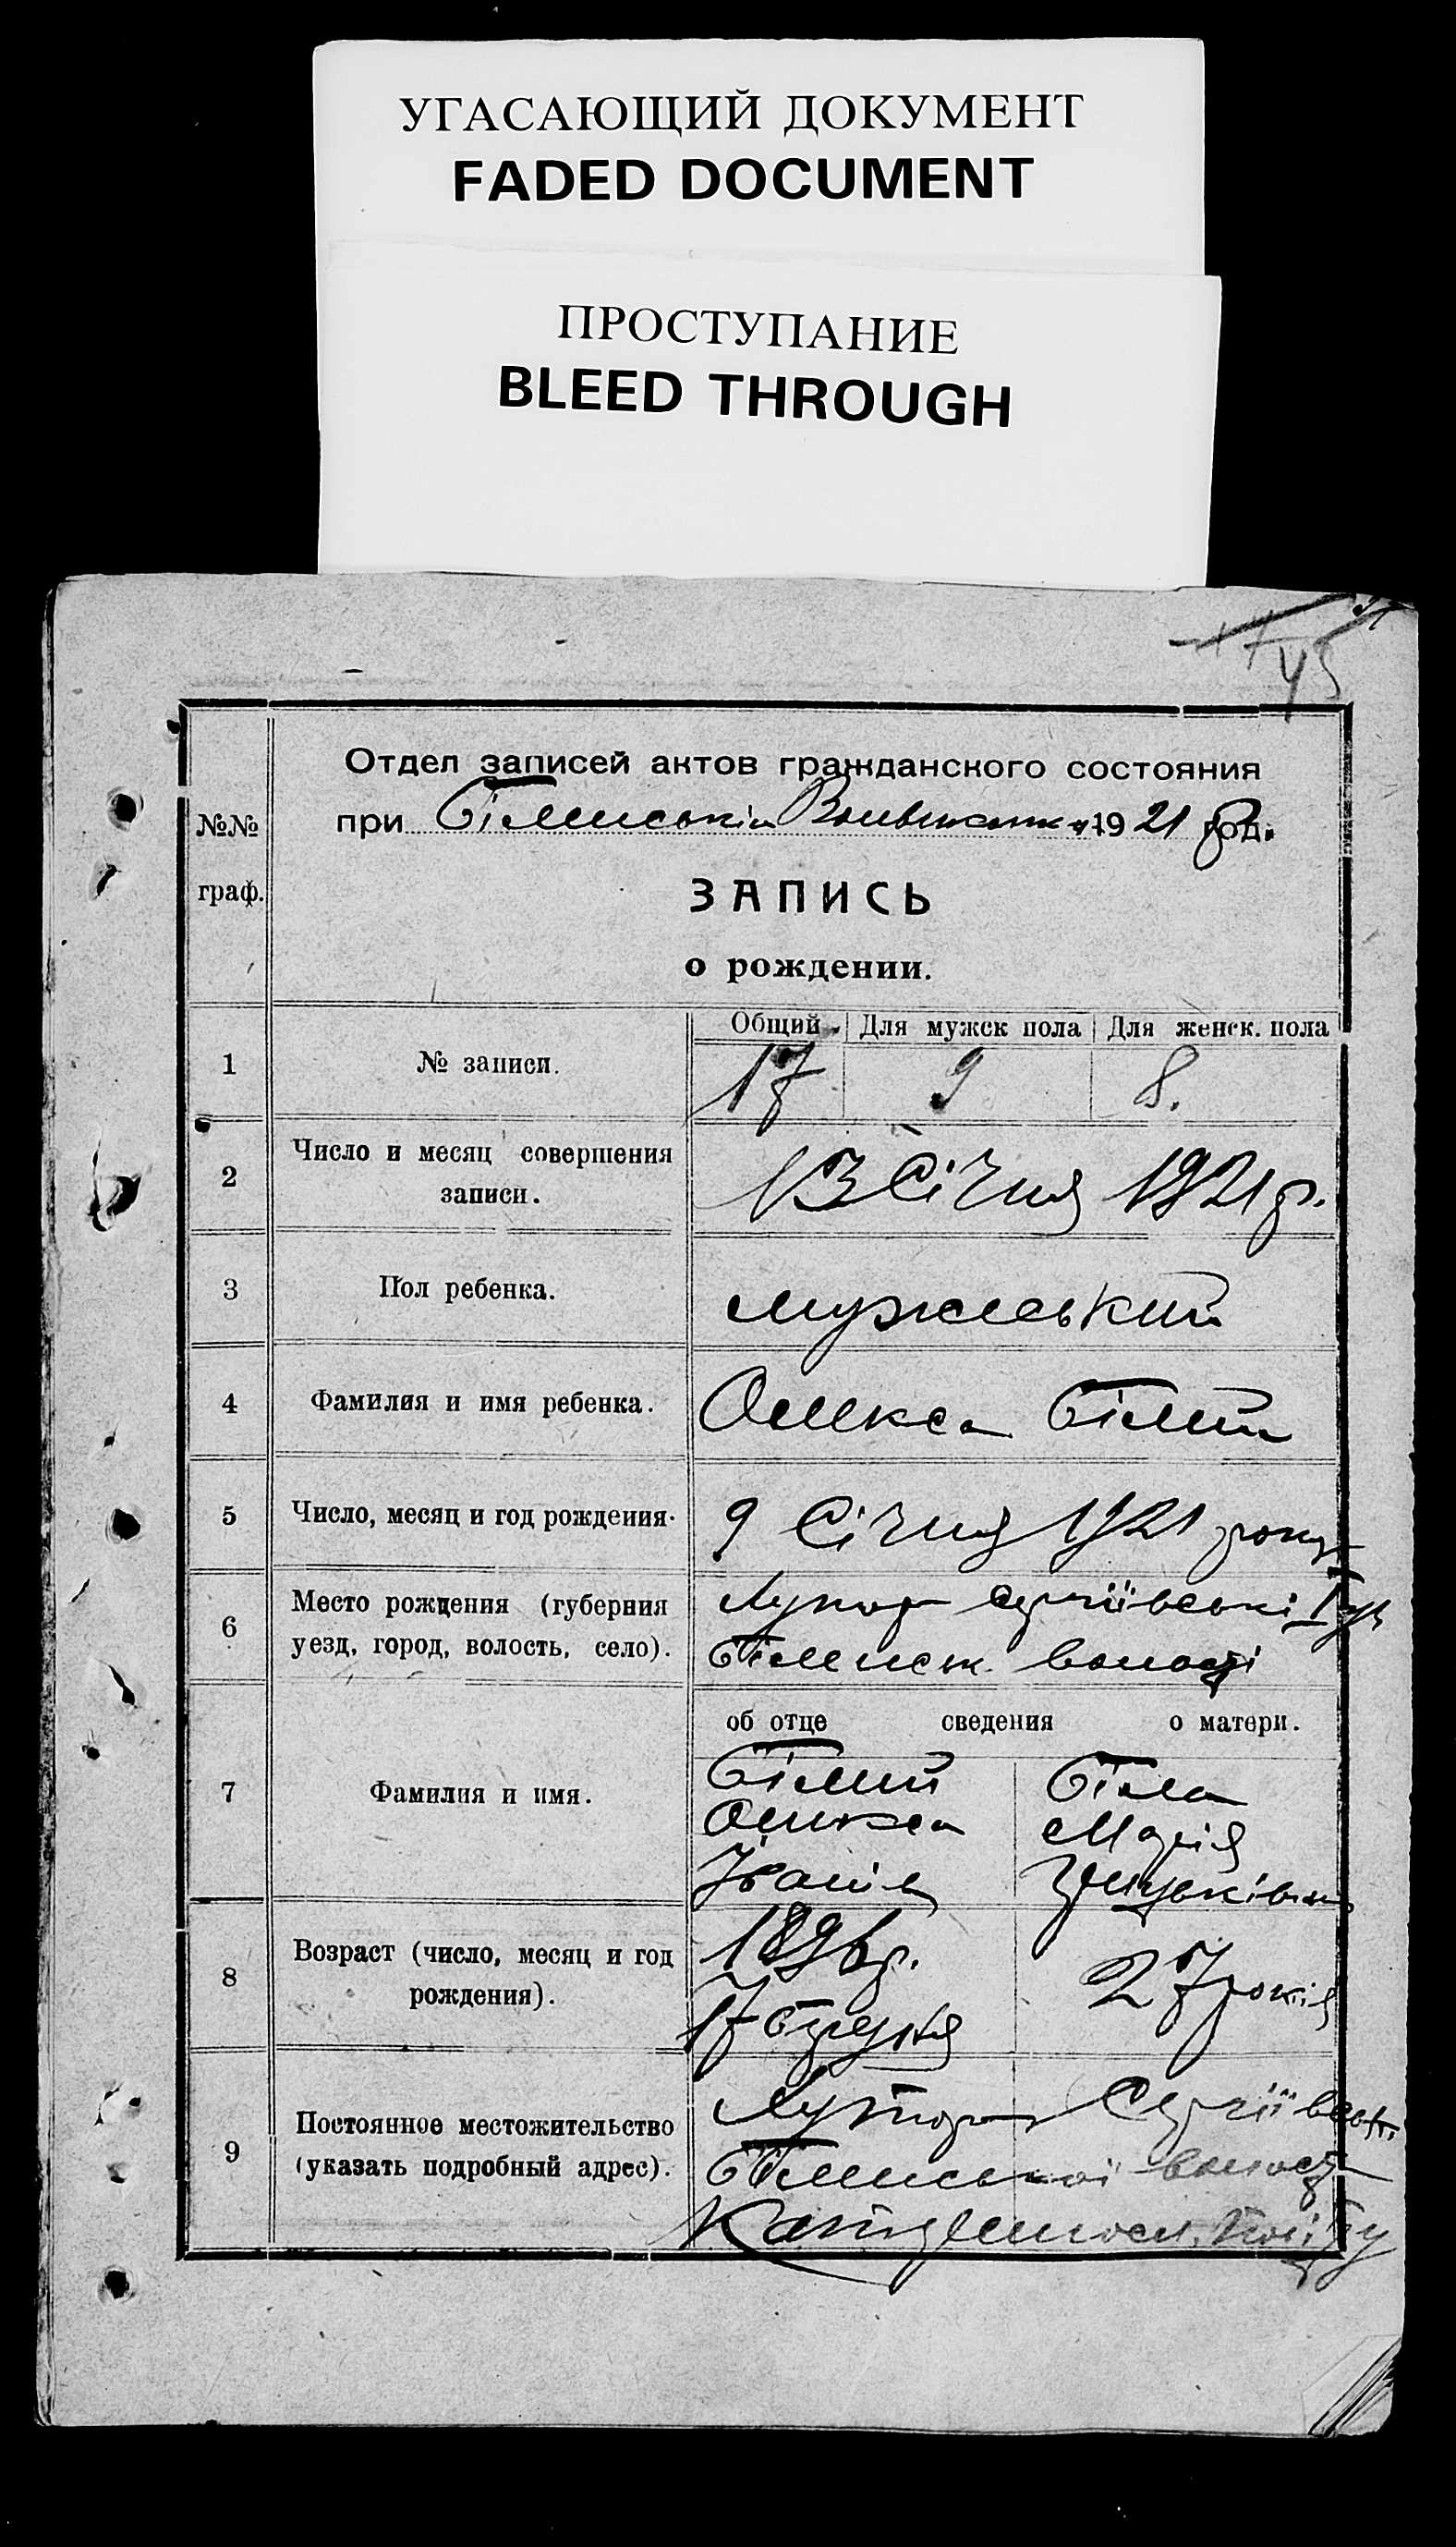 УГАСАЮЩИЙ ДОКУМЕНТ
FADED DOCUMENT
ПРОСТУПАНИЕ
BLEED THROUGH
45
Отдел записей актов гражданского состояния
№№ граф.
при 1921 год.
ЗАПИСЬ
о рождении.
Общий Для мужск пола Для женск. пола
1 № записи. 17 9 8.
2 Число и месяц совершения записи. 13 Січня 1921 р.
3 Пол ребенка. мужеський
4 Фамилия и имя ребенка. Олекса Білий
5 Число, месяц и год рождения. 9 Січня 1921 року
6 Место рождения (губерния
уезд, город, волость, село).
волості
об отце сведения о матери.
7 Фамилия и имя.
Білий Біла
Олекса Марія
Іванів
8 Возраст (число, месяц и год
рождения).
1896 р. 27 років
17
9 Постоянное местожительство
(указать подробный адрес).
Хутор